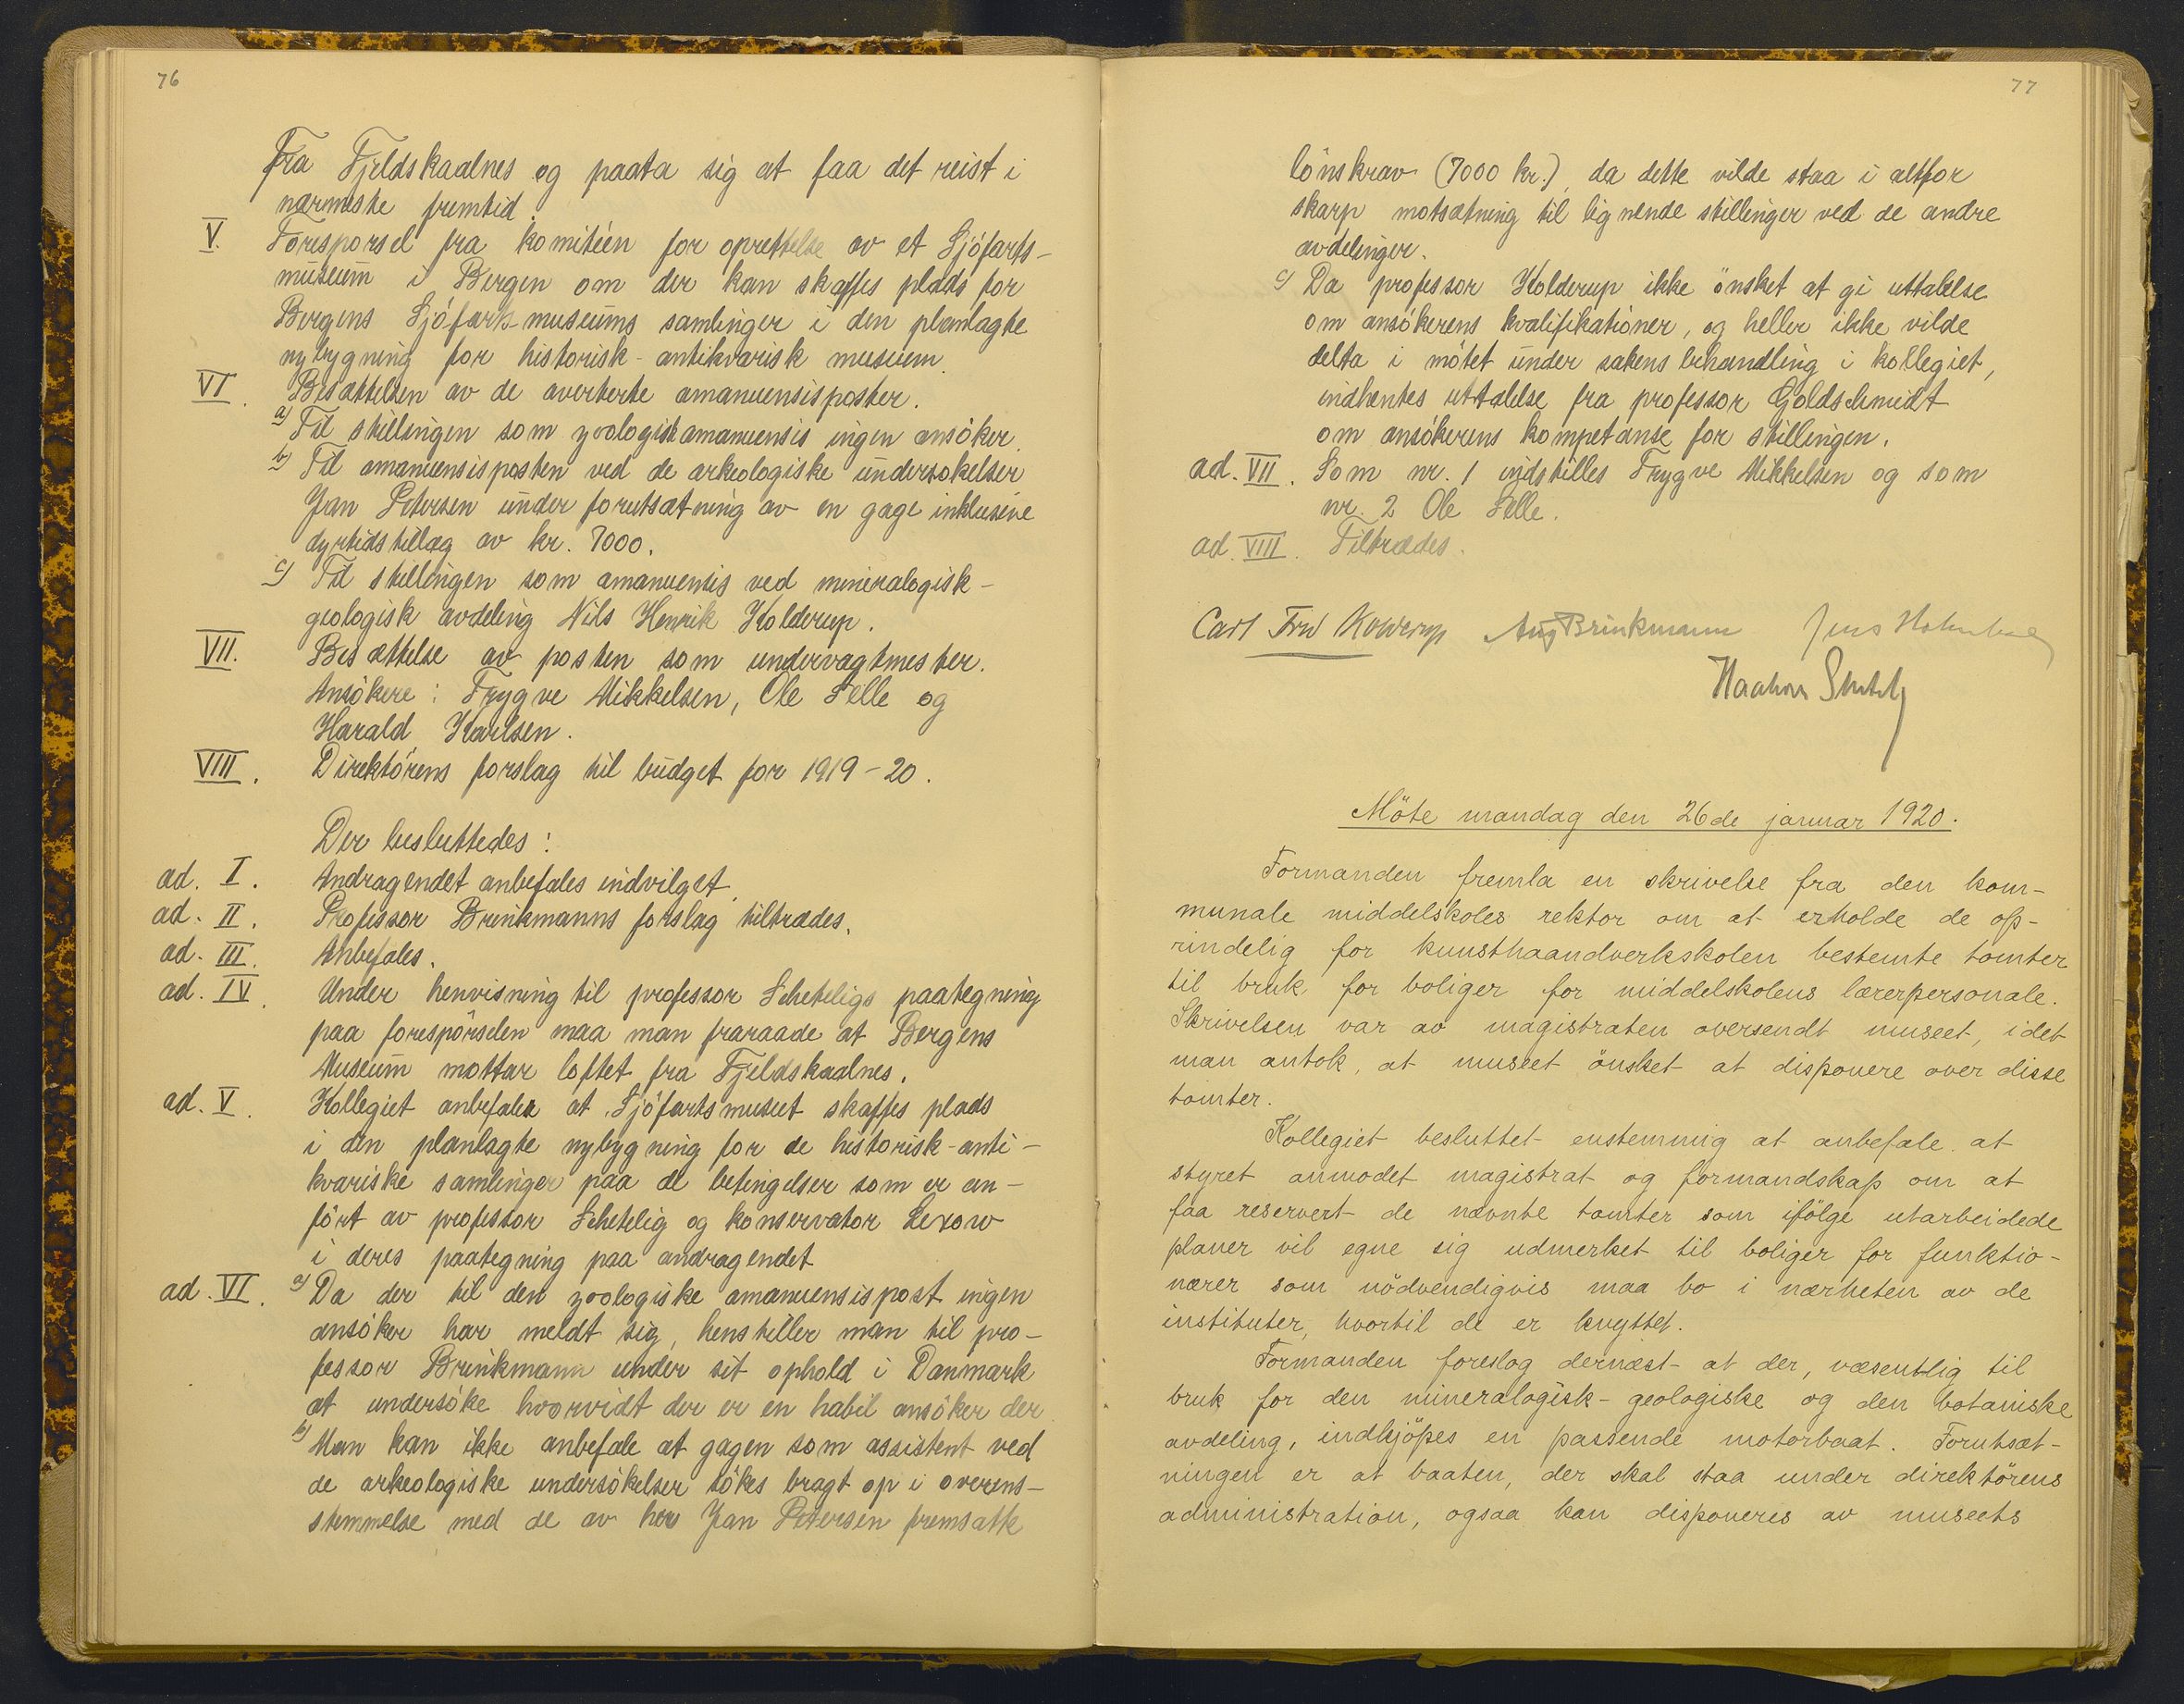 76
fra Fjeldskaalnes og paata sig at faa det reist i
nærmeste fremtid.
V. Foresporsel fra komitéen for oprettelse av et Sjöfarts-
museum i Bergen om der kan skaffes plads for
Bergens Sjöfarts-museums samlinger i den planlagte
nybygning for historisk-antikvarisk museum.
VI. Besættelsen av de averterte amanuensisposter.
a) Til stillingen som zoologisk amanuensis ingen ansöker.
b) Til amanuensisposten ved de arkeologiske undersökelser
Jan Petersen under forutsætning av en gage inklusive
dyrtidstillæg av kr. 7000.
c) Til stillingen som amanuensis ved mineralogisk-
geologisk avdeling Nils Henrik Kolderup.
VII. Besættelse av posten som undervagtmester.
Ansökere: Trygve Mikkelsen, Ole Selle og
Harald Karlsen.
VIII. Direktörens forslag til budget for 1919-20.
Der besluttedes:
ad. I. Andragendet anbefales indvilget.
ad. II. Professor Brinkmanns forslag tiltrædes.
ad. III. Anbefales.
ad. IV. Under henvisning til professor Scheteligs paategning
paa forespörselen maa man fraraade at Bergens
Museum mottar loftet fra Fjeldskaalnes.
ad. V. Kollegiet anbefaler at Sjöfartsmuseet skaffes plads
i den planlagte nybygning for de historisk-anti-
kvariske samlinger paa de betingelser som er an-
fört av professor Schetelig og konservator Lexow
i deres paategning paa andragendet
ad. VI. a) Da der til den zoologiske amanuensispost ingen
ansöker har meldt sig, henstiller man til pro-
fessor Brinkmann under sit ophold i Danmark
at undersöke hvorvidt der er en habil ansöker der.
b) Man kan ikke anbefale at gagen som assistent ved
de arkeologiske undersökelser sökes bragt op i overens-
stemmelse med de av hr Jan Petersen fremsatte
77
lönskrav (7000 kr.), da dette vilde staa i altfor
skarp motsætning til lignende stillinger ved de andre
avdelinger.
c) Da professor Kolderup ikke önsket at gi uttalelse
om ansökerens kvalifikationer, og heller ikke vilde
delta i mötet under sakens behandling i kollegiet,
indhentes uttalelse fra professor Goldschmidt
om ansökerens kompetanse for stillingen.
ad. VII. Som nr. 1 indstilles Trygve Mikkelsen og som
nr. 2 Ole Selle.
ad. VIII. Tiltrædes.
Carl Fred Kolderup Aug Brinkmann Jens Holmboe
Haakon Schetelig
Möte mandag den 26de januar 1920.
Formanden fremla en skrivelse fra den kom-
munale middelskoles rektor om at erholde de op-
rindelig for kunsthaandverkskolen bestemte tomter
til bruk for boliger for middelskolens lærerpersonale.
Skrivelsen var av magistraten oversendt museet, idet
man antok, at museet önsket at disponere over disse
tomter.
Kollegiet besluttet enstemmig at anbefale at
styret anmodet magistrat og formandskap om at
faa reservert de nævnte tomter som ifölge utarbeidede
planer vil egne sig udmerket til boliger for funktio-
nærer som nödvendigvis maa bo i nærheten av de
institutter, hvortil de er knyttet.
Formanden foreslog dernæst at der, væsentlig til
bruk for den mineralogisk-geologiske og den botaniske
avdeling, indkjöpes en passende motorbaat. Forutsæt-
ningen er at baaten, der skal staa under direktörens
administration, ogsaa kan disponeres av museets